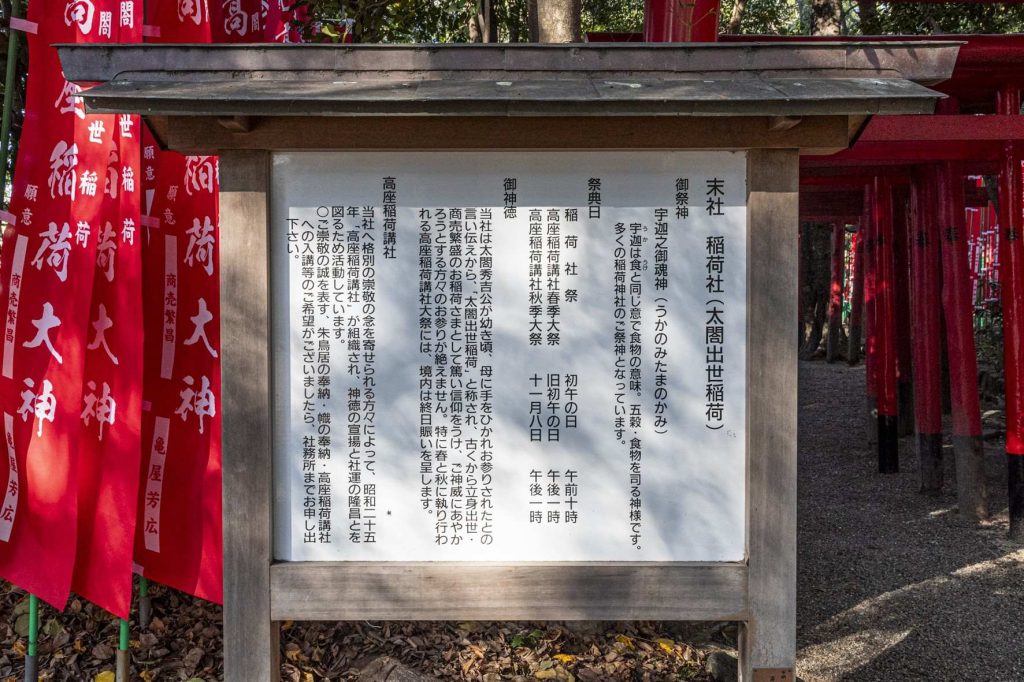 末社 稲荷社(太閤出世稲荷)
御祭神
宇迦之御魂神(うかのみたまのかみ)
宇迦は食と同じ意で食物の意味。五穀・食物を司る神様です。
うか うけ
多くの稲荷神社のご祭神となっています。
祭典日
稲荷社祭 初午の日 午前十時
高座稲荷講社春季大祭 旧初午の日 午後一時
高座稲荷講社秋季大祭 十一月八日 午後一時
御神徳
当社は太閤秀吉公が幼き頃、母に手をひかれお参りされたとの
言い伝えから、"太閤出世稲荷"と称され、古くから立身出世・
商売繁盛のお稲荷さまとして篤い信仰をうけ、ご神威にあやか
ろうとする方々のお参りが絶えません。特に春と秋に執り行わ
れる高座稲荷講社大祭には、境内は終日賑いを呈します。
高座稲荷講社
当社へ格別の崇敬の念を寄せられる方々によって、昭和二十五
年"高座稲荷講社"が組織され、神徳の宣揚と社運の隆昌とを
図るため活動しています。
○ご崇敬の誠を表す、朱鳥居の奉納・幟の奉納・高座稲荷講社
への入講等のご希望がございましたら、社務所までお申し出
下さい。
座稲荷大神
閤
世稲荷
願意
商売繁昌
亀屋芳広
高
大神
閤
世稲荷
願意
稲荷大神
商売繁昌
亀屋芳広